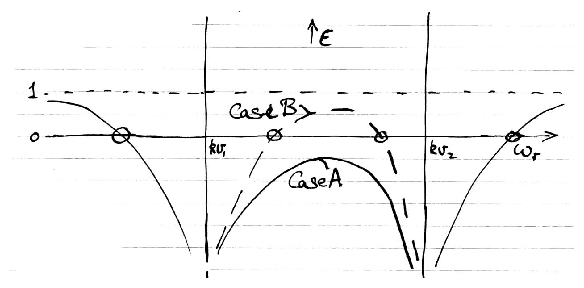 ↑ε
1
Case B
0
kv₁
kv₂
ωᵣ
Case A